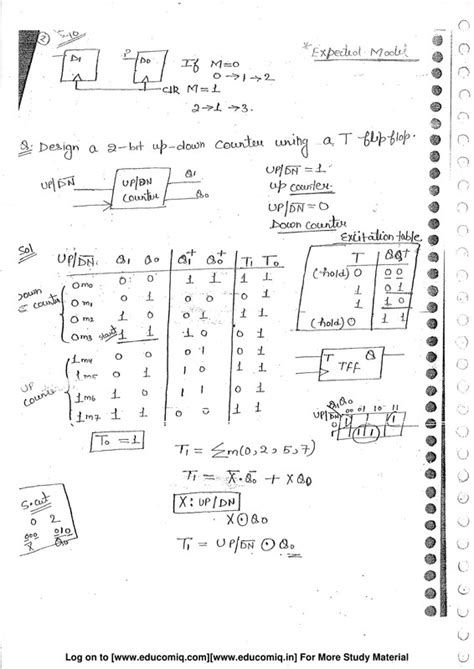 ②
5-10
P
D1
D0
If M=0
0→1→2
CLR M=1
2→1→3.
*Expected Model
Q. Design a 2-bit up-down counter using a T flip flop.
UP/D̅N̅
UP/DN
counter
Q1
Q0
UP/D̅N̅ = 1
up counter.
UP/D̅N̅ = 0
Down counter
Excitation table
Sol
UP/D̅N̅ Q1 Q0 Q1+ Q0+ T1 T0
Down counter
0 m0 0 0 1 1 1 1
0 m1 0 1 0 0 0 1
0 m2 1 0 0 1 1 1
0 m3 start 1 1 1 0 0 1
UP counter
1 m4 0 0 0 1 0 1
1 m5 0 1 1 0 1 1
1 m6 1 0 1 1 0 1
1 m7 1 1 0 0 1 1
T0 = 1
T Q Q+
(hold) 0 0 0
1 0 1
1 1 0
(hold) 0 1 1
T Q
TFF
Q1Q0
UP/D̅N̅ 00 01 10 11
T1 = Σm(0,2,5,7)
T1 = X̅.Q̅0 + XQ0
X : UP/D̅N̅
X⊙Q0
T1 = UP/D̅N̅ ⊙ Q0
S.cut
0 2
000 010
X̅ Q̅0
Log on to [www.educomiq.com][www.educomiq.in] For More Study Material